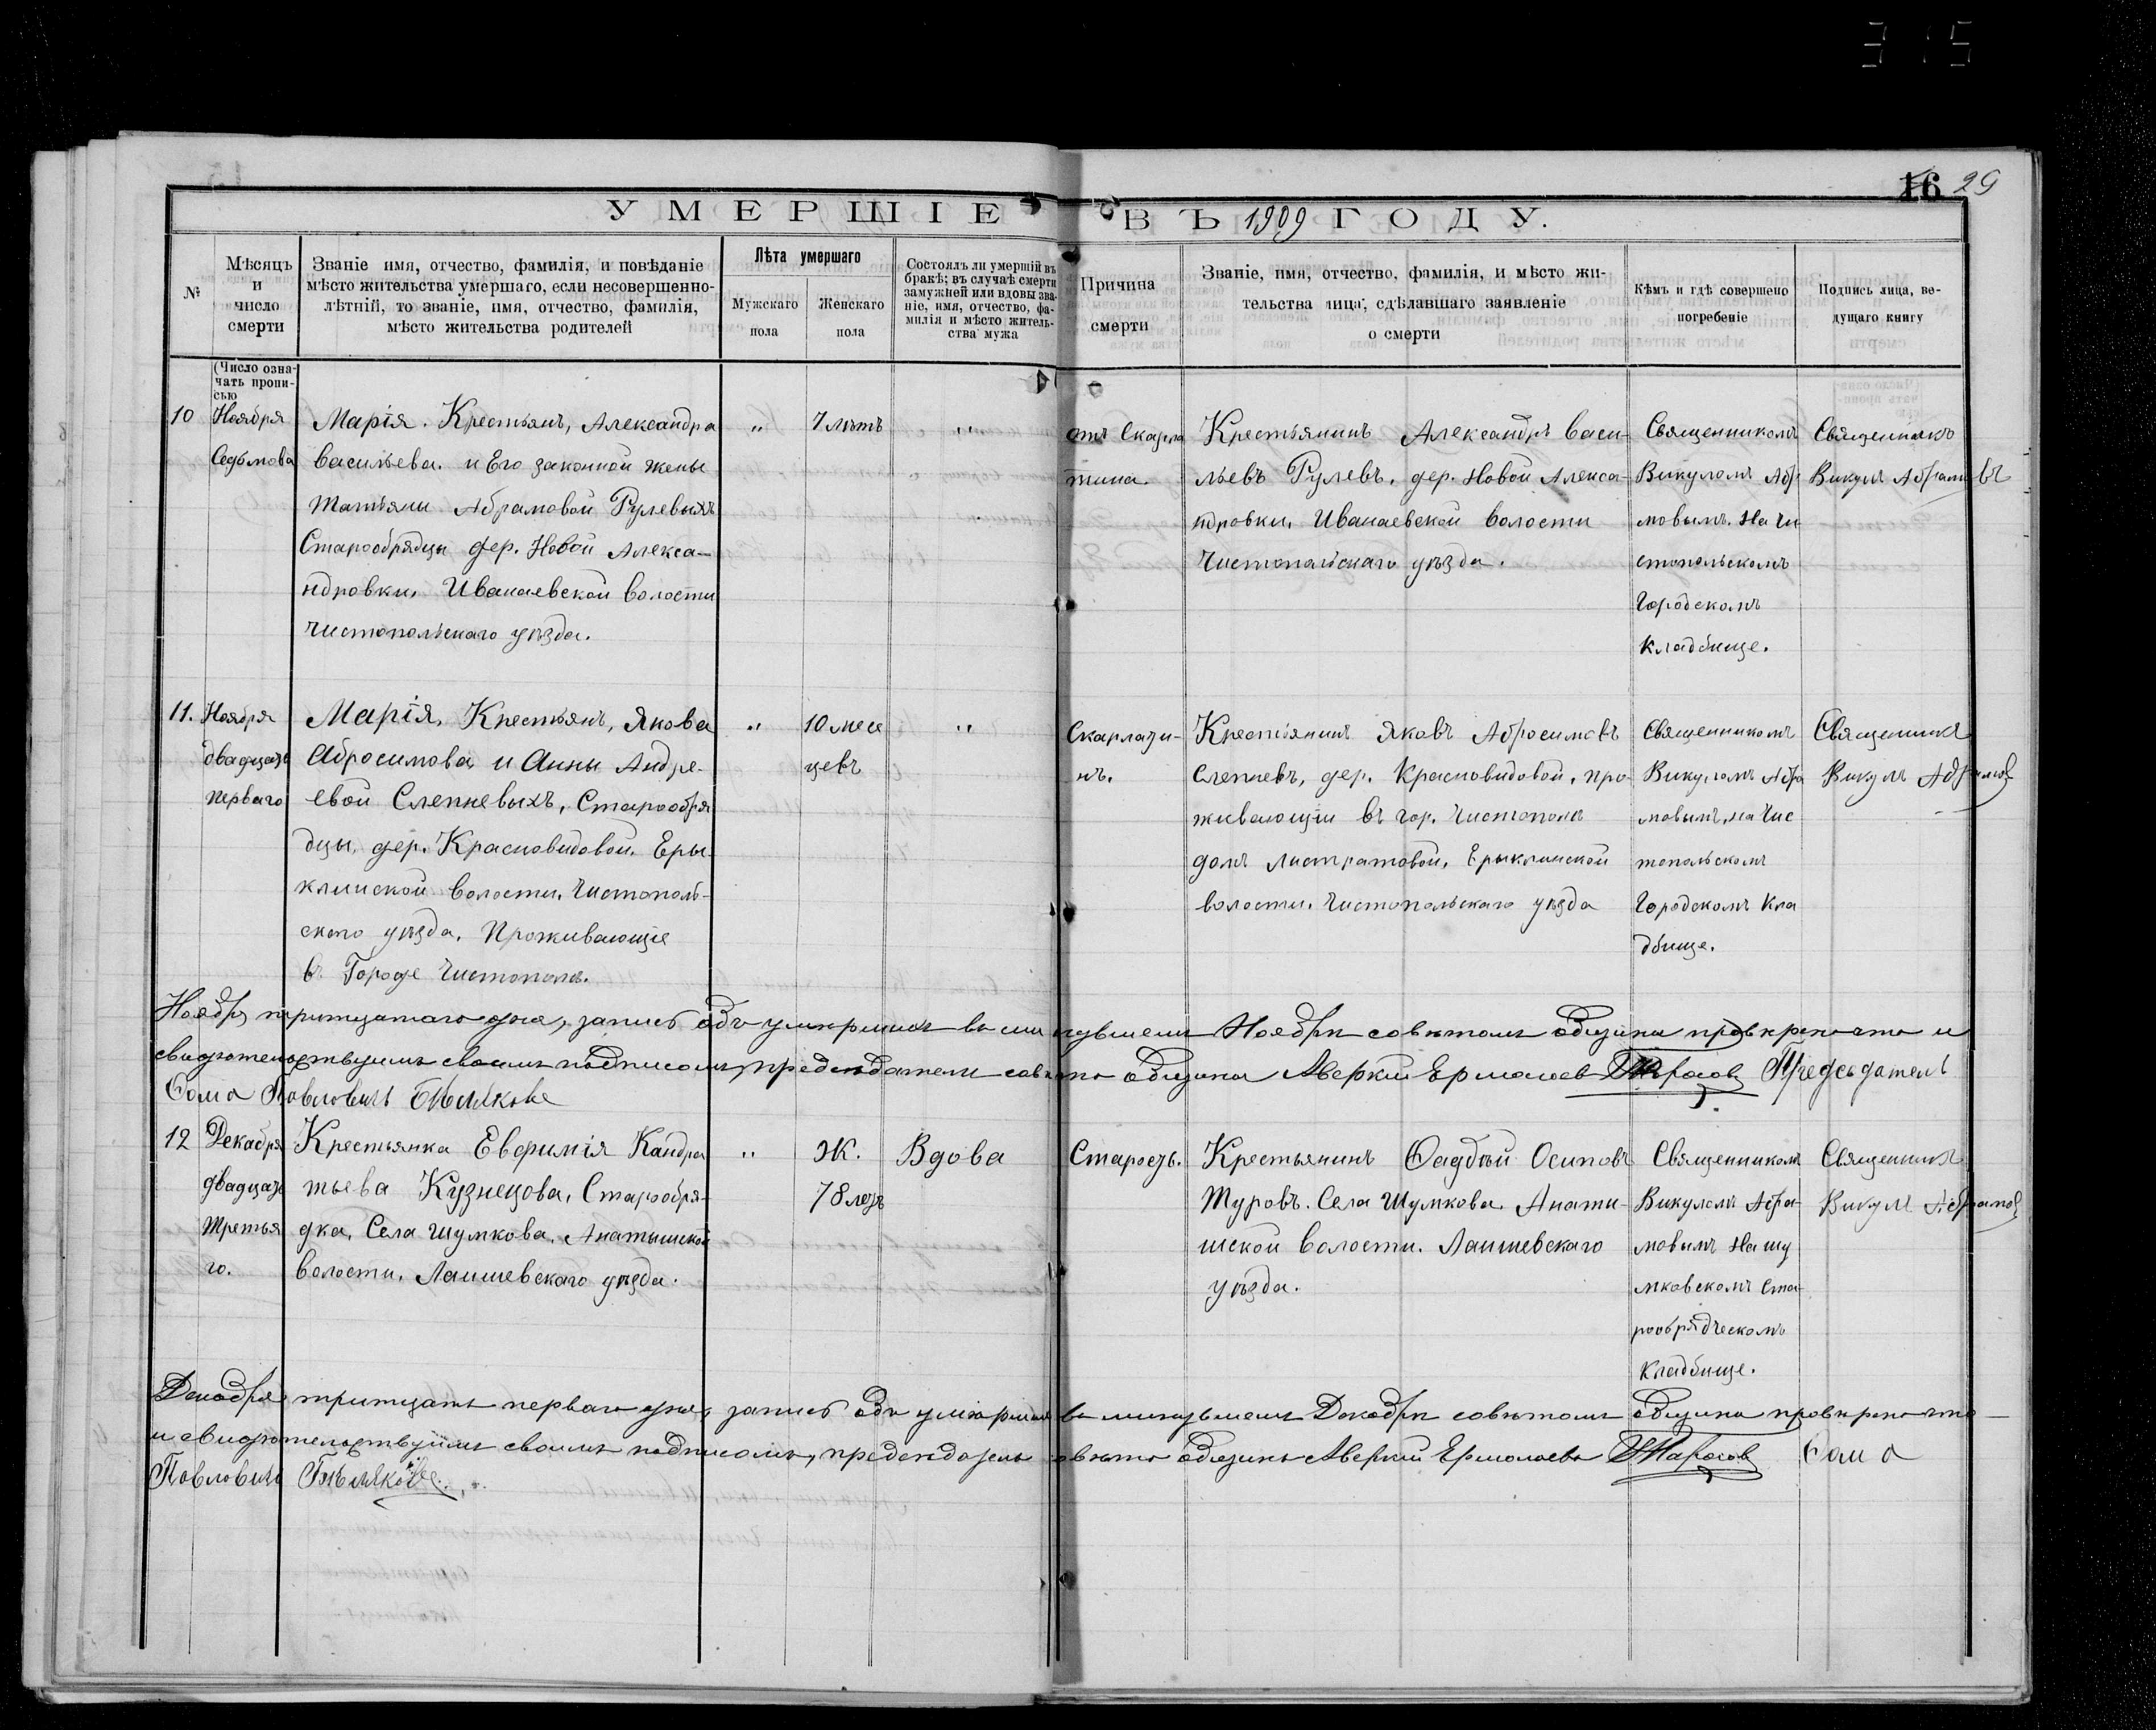 315
16 29
УМЕРШІЕ ВЪ 1909 ГОДУ.
№
Мѣсяцъ
и
число
смерти
Званіе имя, отчество, фамилія, и повѣданіе
мѣсто жительства умершаго, если несовершенно-
лѣтній, то званіе, имя, отчество, фамилія,
мѣсто жительства родителей
Лѣта умершаго
Мужскаго
пола
Женскаго
пола
Состоялъ ли умершій въ
бракѣ; въ случаѣ смерти
замужней или вдовы зва-
ніе, имя, отчество, фа-
милія и мѣсто житель-
ства мужа
Причина
смерти
Званіе, имя, отчество, фамилія, и мѣсто жи-
тельства лица, сдѣлавшаго заявленіе
о смерти
Кѣмъ и гдѣ совершено
погребеніе
Подпись лица, ве-
дущаго книгу
(Число озна-
чать пропи-
сью
10
Ноября
Седьмова
Марія. Крестьянъ, Александра
Васильева. и Его законной жены
Татьяны Абрамовой Рулевыхъ
Старообрядцы дер. Новой Алекса-
ндровки, Иванаевской волости
Чистопольскаго уѣзда.
"
7 лѣтъ
"
отъ Скарла
тина.
Крестьянинъ Александръ Васи-
льевъ Рулевъ, дер. Новой Алекса-
ндровки, Иванаевской волости
Чистопольскаго уѣзда.
Священникомъ
Викуломъ Абр
мовымъ. На Чи
стопольскомъ
Городскомъ
Кладбище.
Священникъ
Викулъ Абрамовъ
11.
Ноября
двадцать
перваго
Марія, Крестьянъ, Якова
Абросимова, и Анны Андре-
евой Слепневыхъ, Старообря
дцы, дер. Красновидовой. Еры-
клинской волости. Чистополь-
скаго уѣзда. Проживающіе
въ Городе Чистополѣ.
"
10 месе
цевъ
"
Скарлати-
нъ.
Крестьянинъ Яковъ Абросимовъ
Слепневъ, дер. Красновидовой, про-
живающій въ гор. Чистополѣ
домъ Листратовой, Ерыклинской
волости. Чистопольскаго уѣзда
Священникомъ
Викуломъ Абра
мовымъ, на Чис
топольскомъ
Городскомъ Кла
дбище.
Священникъ
Викулъ Абрамовъ
Ноября тритцатаго дня, запись объ умершихъ въ минувшемъ Ноябрѣ совѣтомъ общины провѣрено что и
свидѣтельствуимъ своимъ подписомъ, председатели совѣта общины Аверкій Ермолаев Тарасов Председатель
Ѳома Павловичъ Бѣляковъ
12
Декабря
двадцать
третья
го.
Крестьянка Евѳимія Кандра
тьева Кузнецова, Старообря-
дка, Села Шумкова, Анатышской
волости, Лаишевскаго уѣзда.
"
Ж.
78 летъ
Вдова
Старость.
Крестьянинъ Ѳаддѣй Осиповъ
Туровъ. Села Шумкова. Анаты-
шской волости. Лаишевскаго
уѣзда.
Священникомъ
Викуломъ Абра-
мовымъ На Шу
мковскомъ Ста-
рообрядческомъ
Кладбище.
Священникъ
Викулъ Абрамовъ
Декабря тритцать перваго дня, запись объ умершихъ въ минувшемъ Декабрѣ совѣтомъ общины провѣрено что
и свидѣтельствуимъ своимъ подписомъ, председатель совѣта общины Аверкій Ермолаевъ Тарасов Ѳома
Павловичъ Бѣляковъ.